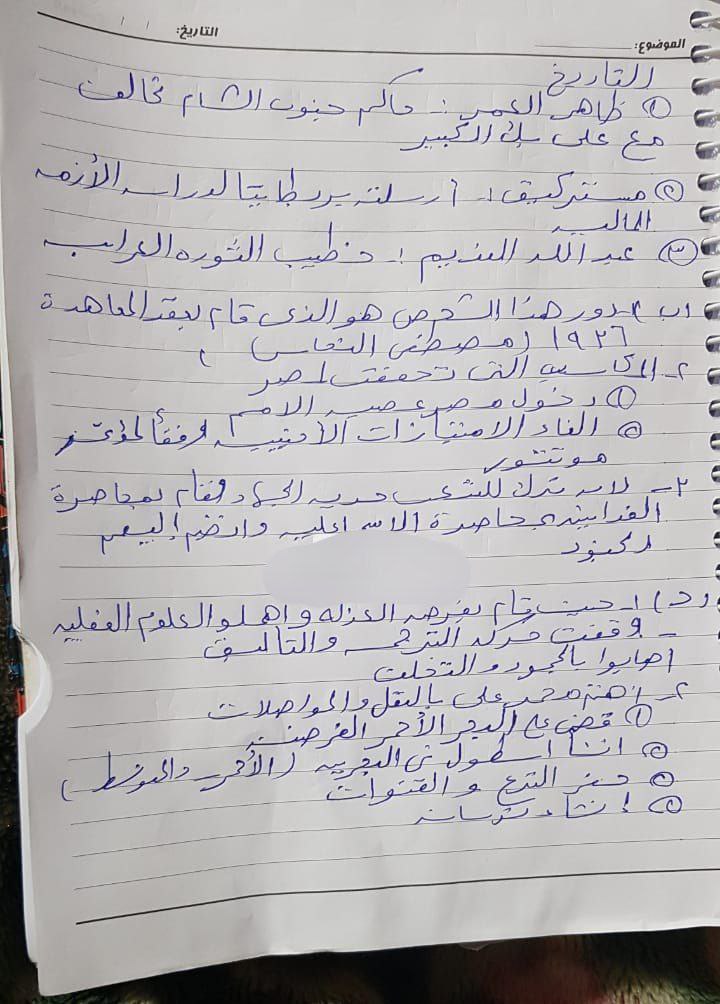 الموضوع:
التاريخ:
التاريخ
① ظاهر العمر :- حاكم جنوب الشام تحالف
مع على بك الكبير
② مستر كيف :- أرسلته بريطانيا لدراسه الأزمه
الماليه
③ عبد الله النديم :- خطيب الثوره العرابيه
(ب) 1- دور هذا الشخص هو الذى قام بعقد المعاهدة
١٩٣٦ (مصطفى النحاس)
٢- المكاسب التى تحققت لمصر
① دخول مصر عصبه الامم
② الغاء الامتيازات الأجنبيه وفقاً لمؤتمر
مونتتور
٢- لانه ترك للشعب حريه الجهاد فقام بمحاصرة
الفدايين محاصرة الاسماعليه وانضم إليهم
الجنود
(د) ١- حيث قام بفرض العزله و اهملو العلوم العقليه
- وقفت حركه الترجمه والتاليف
اصابوا بالجمود والتخلف
٢- اهتم محمد على بالنقل والمواصلات
① قضى على البحر الأحمر القرصنه
② انشأ اسطول فى البحريه (الأحمر والمتوسط)
② حفر الترع و القنوات
② انشاء ترسانه